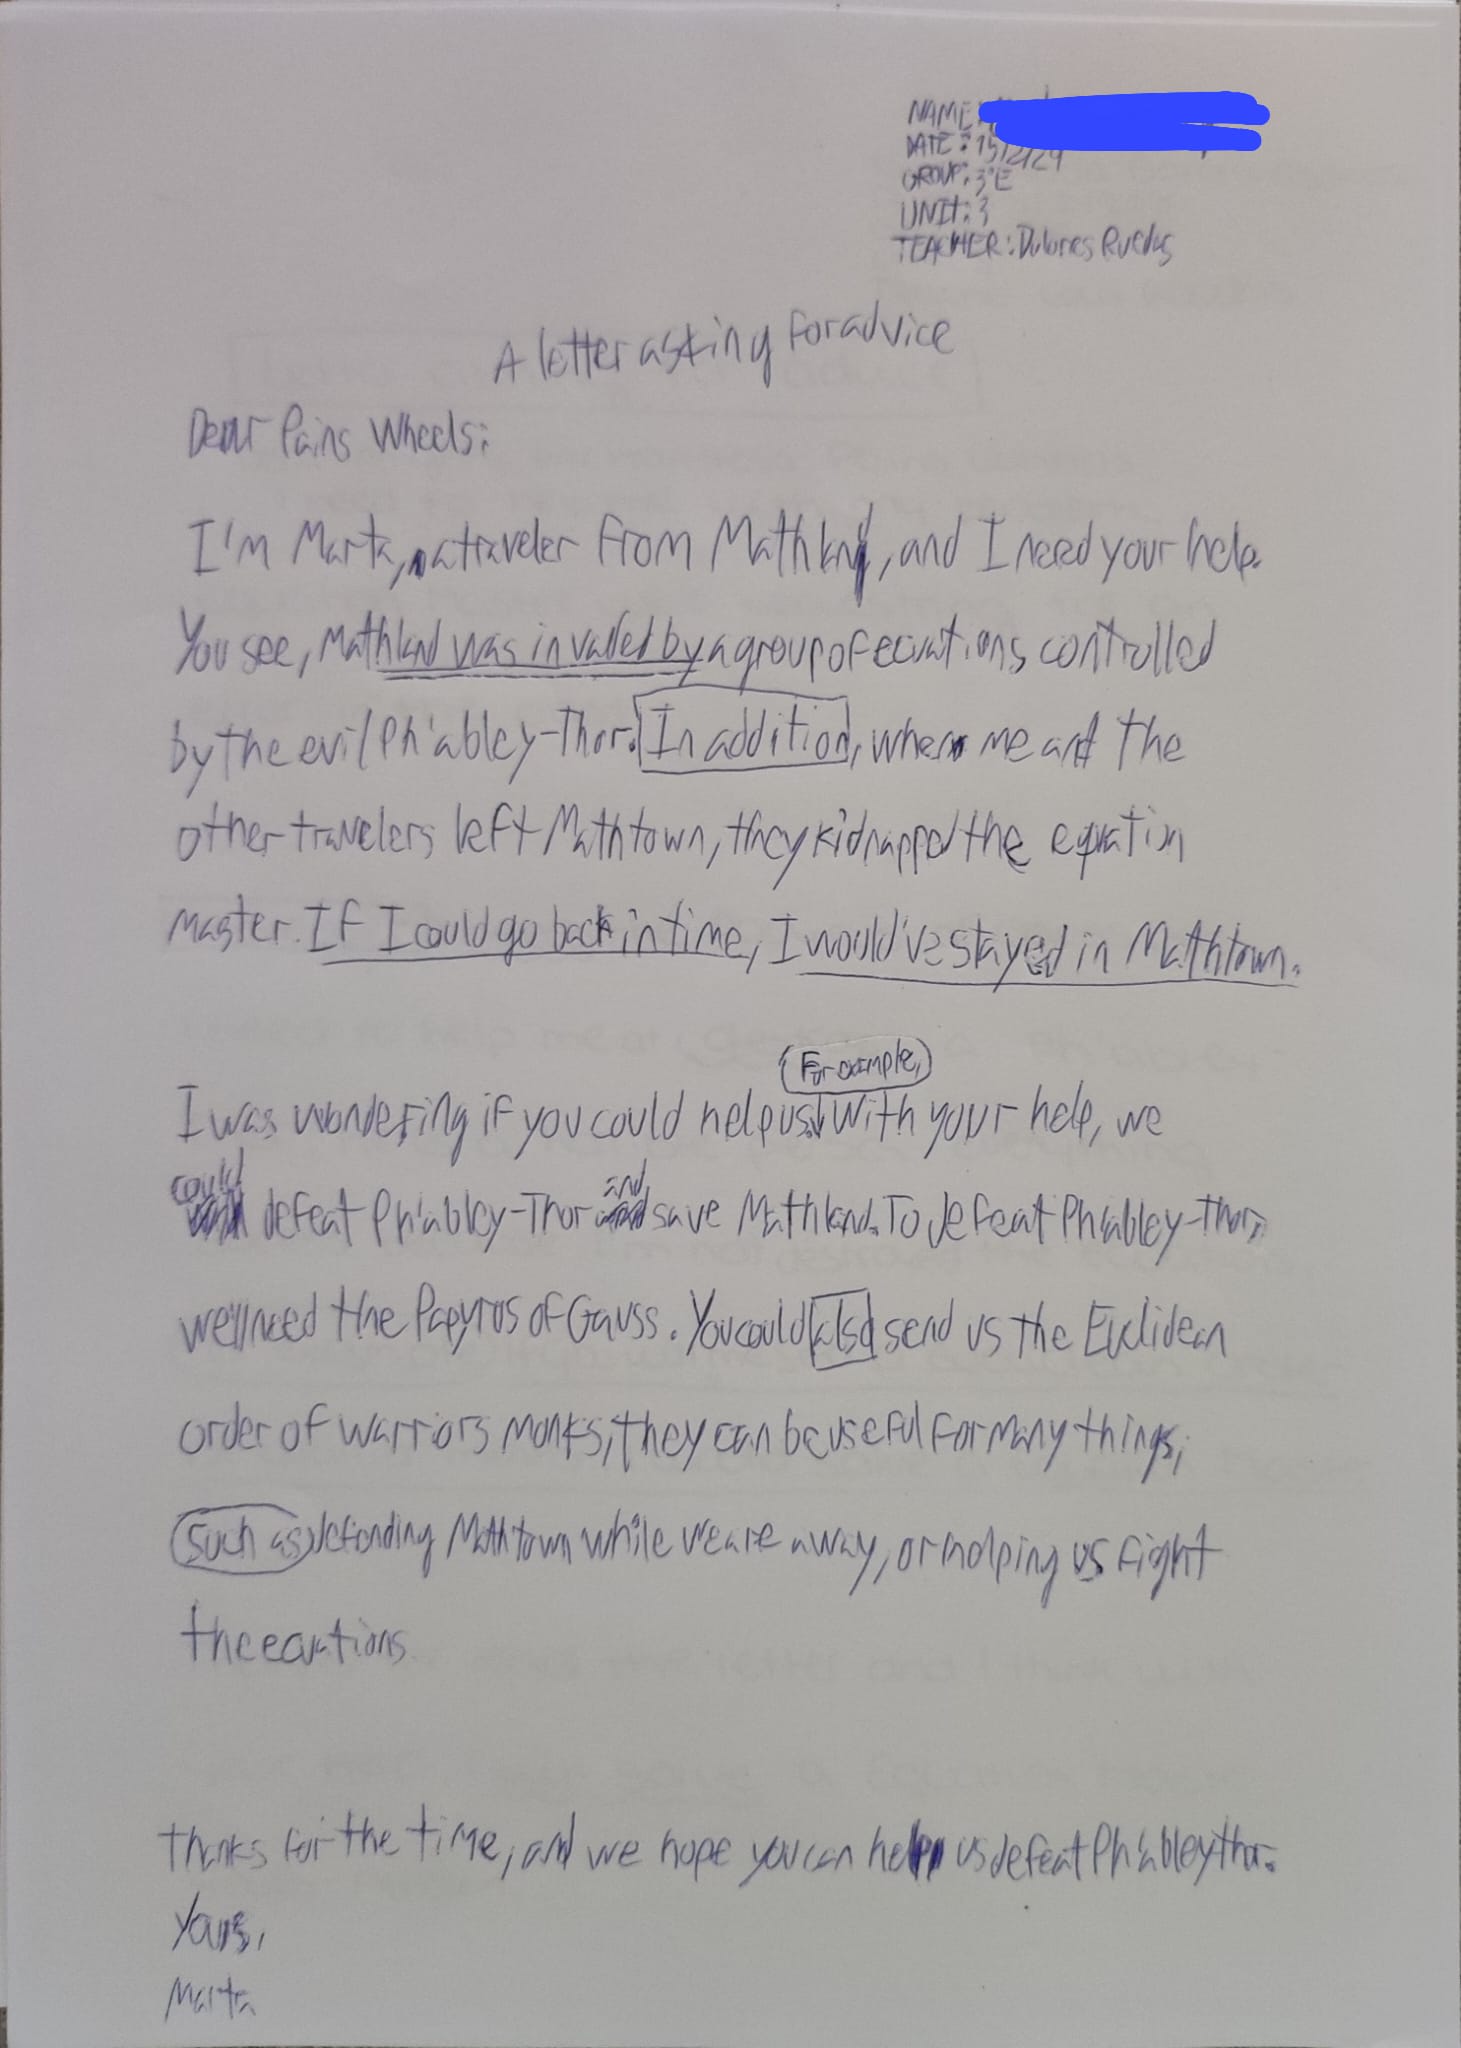 NAME:
DATE: 15/2/24
GROUP: 3ºE
UNIT: 3
TEACHER: Dolores Ruedas
A letter asking for advice
Dear Pains Wheels:
I'm Marta, a traveler from Mathland, and I need your help.
You see, Mathland was invaded by a group of ecuations controlled
by the evil Ph'abley-Thor. In addition, when me and the
other travelers left Mathtown, they kidnapped the equation
master. If I could go back in time, I would've stayed in Mathtown.
For example,
I was wondering if you could help us. With your help, we
could defeat Ph'abley-Thor and save Mathland. To defeat Ph'abley-Thor,
we'll need the Papyrus of Gauss. You could also send us the Euclidean
order of warriors monks, they can be useful for many things,
such as defending Mathtown while we are away, or helping us fight
the ecuations.
Thanks for the time, and we hope you can help us defeat Ph'abley thor.
Yours,
Marta